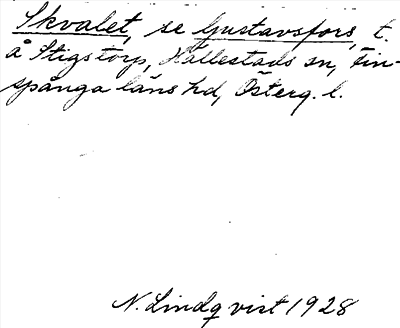 Skvalet, se Gustavsfors, t.
å Stigstorp, Hällestads sn, Fin-
spånga läns hd, Österg. l.
N. Lindqvist 1928